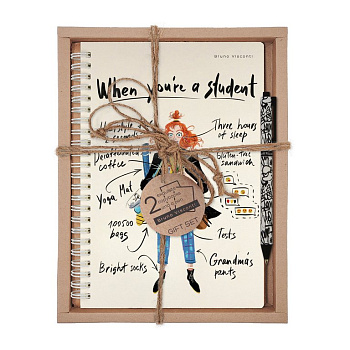 Bruno Visconti
When you're a student
Three hours
of sleep
coffee
Gluten-free
sandwich
Yoga Mat
2
Bruno Visconti
GIFT SET
100500
bags
Tests
Bright socks
Grandma's
pants